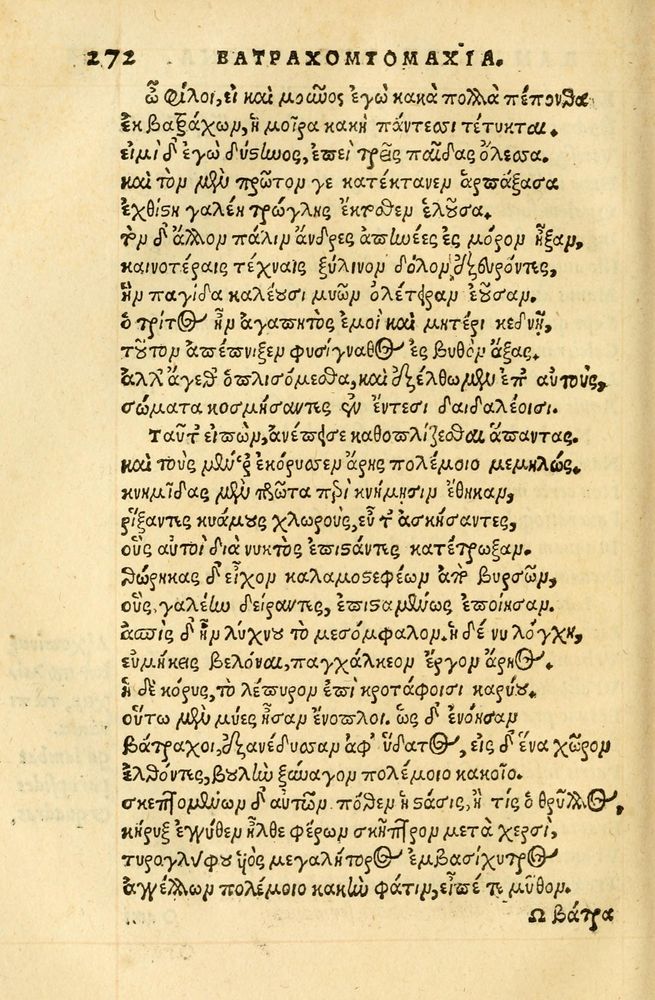 272 ΒΑΤΡΑΧΟΜΥΟΜΑΧΊΑ.
ὦ φίλοι, εἰ καὶ μοῦνος ἐγὼ κακὰ πολλὰ πέπονθα
ἐκ βατράχων, ἡ μοῖρα κακὴ πάντεσσι τέτυκται.
εἰμὶ δ' ἐγὼ δύστηνος, ἐπεὶ τρεῖς παῖδας ὄλεσσα.
καὶ τὸν μὲν πρῶτον γε κατέκτανεν ἁρπάξασα
ἐχθίστη γαλέη τρώγλης ἔκτοθεν ἑλοῦσα.
τὸν δ' ἄλλον πάλιν ἄνδρες ἀπηνέες ἐς μόρον ἦξαν,
καινοτέραις τέχναις ξύλινον δόλον ἐξευρόντες,
ἣν παγίδα καλέουσι μυῶν ὀλέτειραν ἐοῦσαν.
ὁ τρίτος ἦν ἀγαπητὸς ἐμοὶ καὶ μητέρι κεδνῇ,
τοῦτον ἀπέπνιξεν φυσίγναθος ἐς βυθὸν ἄξας.
ἀλλ' ἄγεθ' ὁπλισόμεσθα, καὶ ἐξέλθωμεν ἐπ' αὐτούς,
σώματα κοσμήσαντες ἐν ἔντεσι δαιδαλέοισι.
Ταῦτ' εἰπὼν, ἀνέπεισε καθοπλίζεσθαι ἅπαντας.
καὶ τοὺς μέν ῥ' ἐκόρυσσεν ἄρης πολέμοιο μεμηλώς.
κνημῖδας μὲν πρῶτα περὶ κνήμησιν ἔθηκαν,
ῥίξαντες κυάμους χλωροὺς, εὖ τ' ἀσκήσαντες,
οὓς αὐτοὶ διὰ νυκτὸς ἐπιστάντες κατέτρωξαν.
θώρηκας δ' εἶχον καλαμοστεφέων ἀπὸ βυρσῶν,
οὓς, γαλέην δείραντες, ἐπισταμένως ἐποίησαν.
ἀσπὶς δ' ἦν λύχνου τὸ μεσόμφαλον. ἡ δέ νυ λόγχη,
εὐμήκεις βελόναι, παγχάλκεον ἔργον ἄρηος.
ἡ δὲ κόρυς, τὸ λέπυρον ἐπὶ κροτάφοισι καρύου.
οὕτω μὲν μύες ἦσαν ἔνοπλοι. ὡς δ' ἐνόησαν
βάτραχοι, ἐξανέδυσσαν ἀφ' ὕδατος, εἰς δ' ἕνα χῶρον
ἐλθόντες, βουλὴν ξύναγον πολέμοιο κακοῖο.
σκεπτομένων δ' αὐτῶν πόθεν ἡ στάσις, ἢ τίς ὁ θρύλλος,
κήρυξ ἐγγύθεν ἦλθε φέρων σκῆπτρον μετὰ χερσὶ,
τυρογλύφου υἱὸς μεγαλήτορος ἐμβασίχυτρος
ἀγγέλλων πολέμοιο κακὴν φάτιν, εἶπέ τε μῦθον.
Ω βάτρα